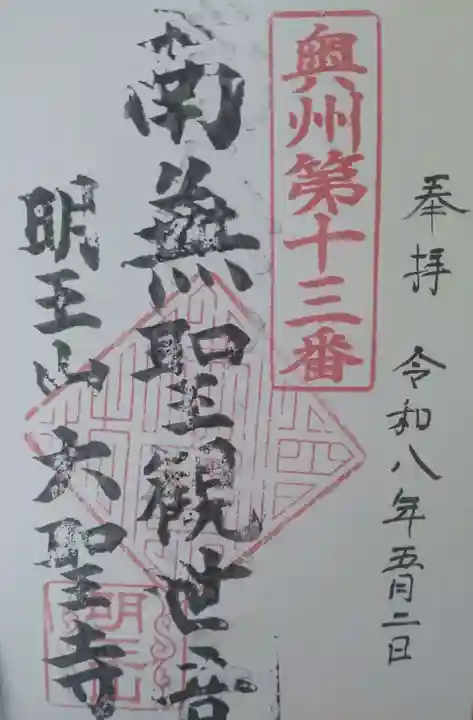 奉拝 令和八年五月二日
奥州第十三番
南無聖観世音
明王山 大聖寺